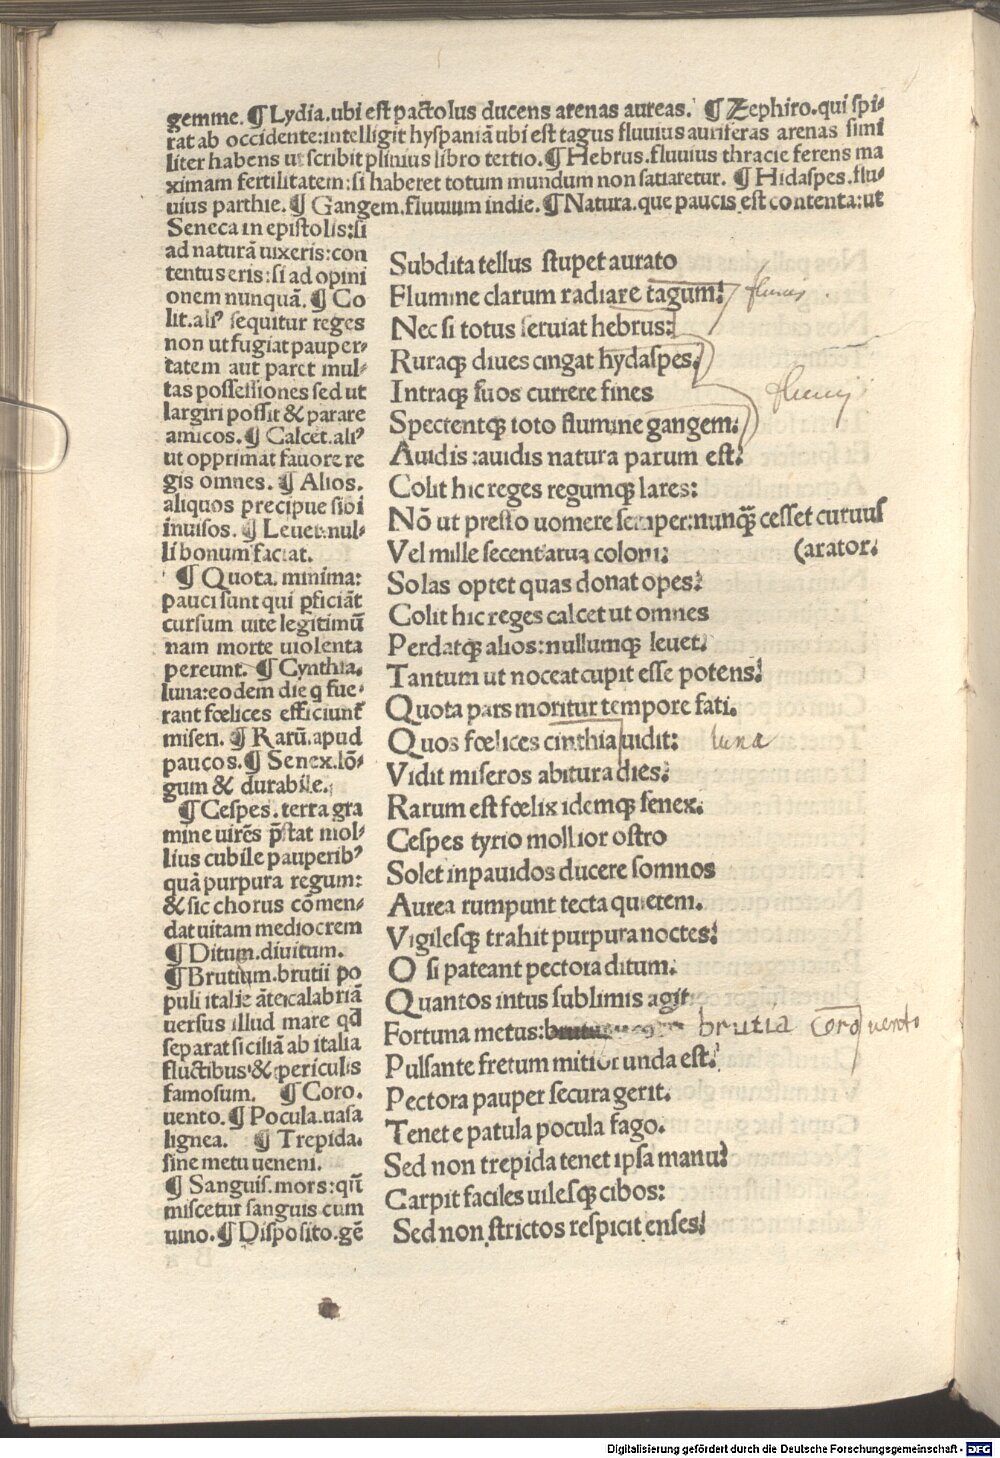 gemme. ¶ Lydia.ubi est pactolus ducens arenas aureas. ¶ Zephiro.qui spi-
rat ab occidente:intelligit hyspaniã ubi est tagus fluuius auriferas arenas simi
liter habens ut scribit plinius libro tertio. ¶ Hebrus.fluuius thracie ferens ma
ximam fertilitatem:si haberet totum mundum non satiaretur. ¶ Hidaspes.flu-
uius parthie. ¶ Gangem.fluuium indie. ¶ Natura.que paucis est contenta:ut
Seneca in epistolis:si
ad naturã uixeris:con
tentus eris:si ad opini
onem nunquã. ¶ Co
lit.aliꝰ sequitur reges
non ut fugiat pauper-
tatem aut paret mul-
tas possessiones sed ut
largiri possit & parare
amicos. ¶ Calcet.aliꝰ
ut opprimat fauore re
gis omnes. ¶ Alios.
aliquos precipue sibi
inuisos. ¶ Leuet.nul-
li bonum faciat.
¶ Quota. minima:
pauci sunt qui pficiãt
cursum uite legitimũ
nam morte uiolenta
pereunt. ¶ Cynthia.
luna:eodem die q fue-
rant fœlices efficiunt̃
miseri. ¶ Rarũ.apud
paucos. ¶ Senex.lõ-
gum & durabile.
¶ Cespes.terra gra
mine uirẽs p̃stat mol-
lius cubile pauperibꝰ
quã purpura regum:
& sic chorus cõmen-
dat uitam mediocrem
¶ Ditum.diuitum.
¶ Brutium.brutii po
puli italie ãte calabriã
uersus illud mare qd̃
separat siciliã ab italia
fluctibus & periculis
famosum. ¶ Coro.
uento. ¶ Pocula.uasa
lignea. ¶ Trepida.
sine metu ueneni.
¶ Sanguis.mors:qñ
miscetur sanguis cum
uino. ¶ Disposito.gẽ
Subdita tellus stupet aurato
Flumine clarum radiare tagum: fluuius
Nec si totus seruiat hebrus:
Ruraqꝫ diues cingat hydaspes.
Intraqꝫ suos currere fines
Spectentqꝫ toto flumine gangem:
Auidis:auidis natura parum est:
Colit hic reges regumqꝫ lares:
Nõ ut presso uomere semper:nunq̃ꝫ cesset curuus
Vel mille secent arua coloni: (arator.
Solas optet quas donat opes:
Colit hic reges calcet ut omnes
Perdatqꝫ alios:nullumqꝫ leuet.
Tantum ut noceat cupit esse potens:
Quota pars moritur tempore fati.
Quos fœlices cinthia uidit: luna
Vidit miseros abitura dies:
Rarum est fœlix idemqꝫ senex.
Cespes tyrio mollior ostro
Solet inpauidos ducere somnos
Aurea rumpunt tecta quietem.
Vigilesqꝫ trahit purpura noctes:
O si pateant pectora ditum.
Quantos intus sublimis agit
Fortuna metus: brutia coro uento
Pulsante fretum mitior unda est:
Pectora pauper secura gerit.
Tenet e patula pocula fago.
Sed non trepida tenet ipsa manu:
Carpit faciles uilesqꝫ cibos:
Sed non strictos respicit enses:
Digitalisierung gefördert durch die Deutsche Forschungsgemeinschaft - DFG